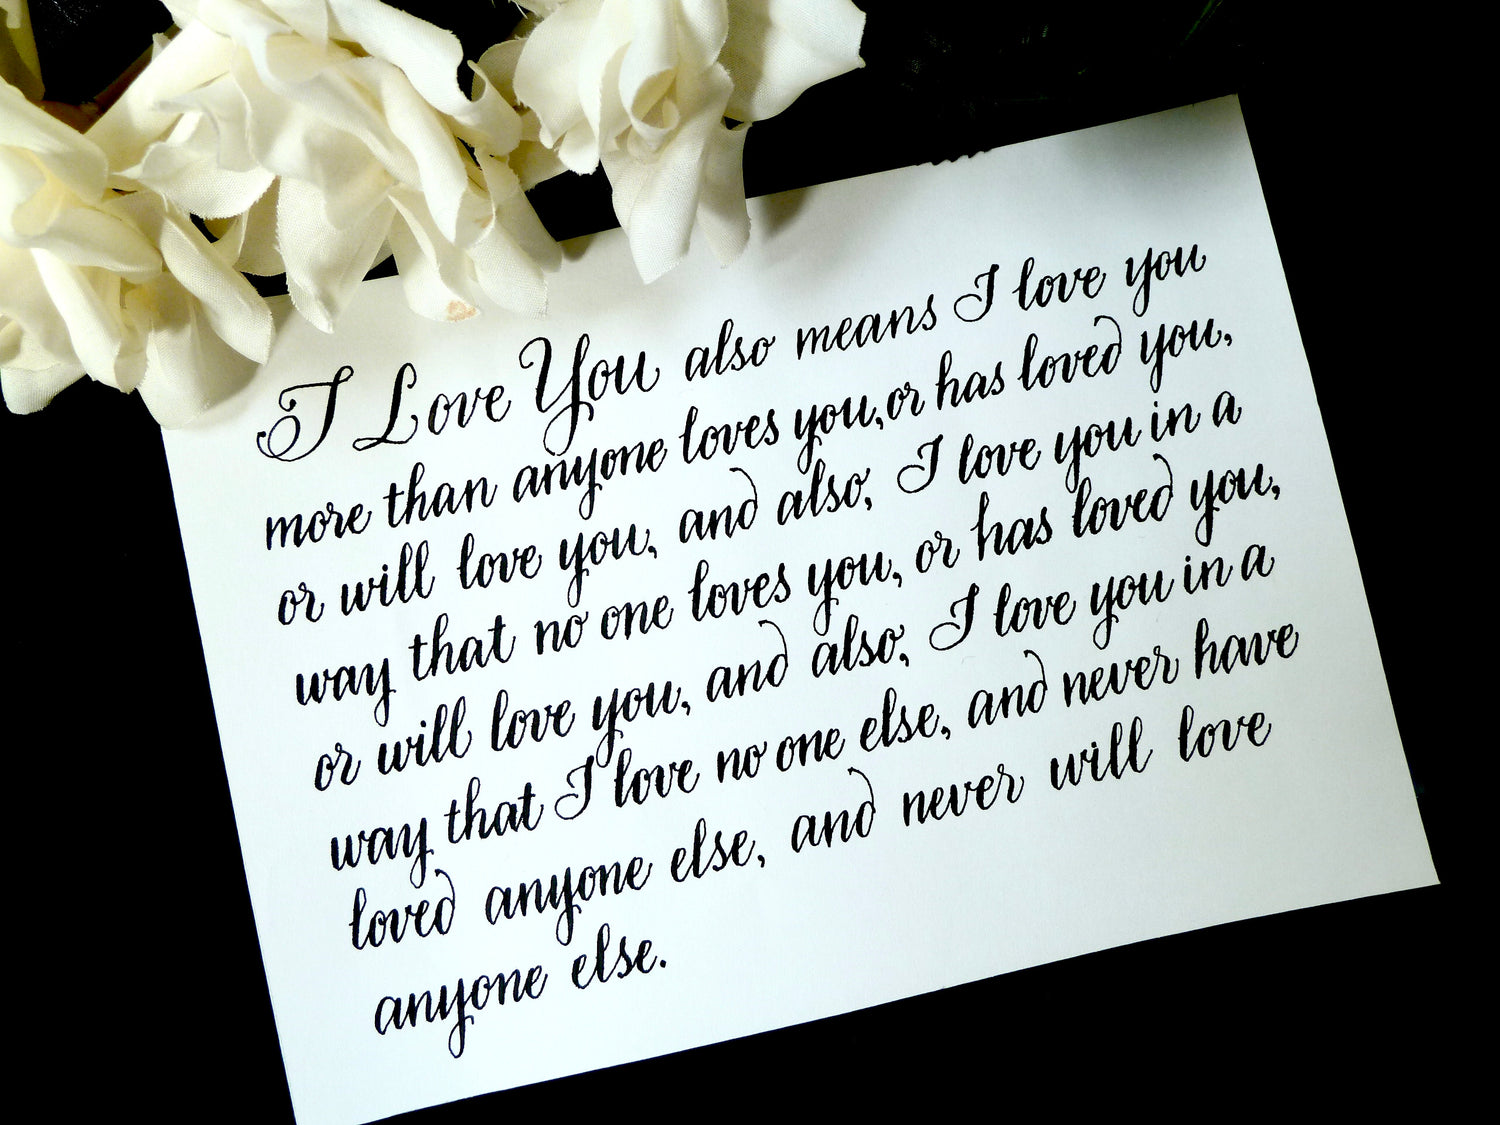 I Love You also means I love you
more than anyone loves you, or has loved you,
or will love you, and also, I love you in a
way that no one loves you, or has loved you,
or will love you, and also, I love you in a
way that I love no one else, and never have
loved anyone else, and never will love
anyone else.